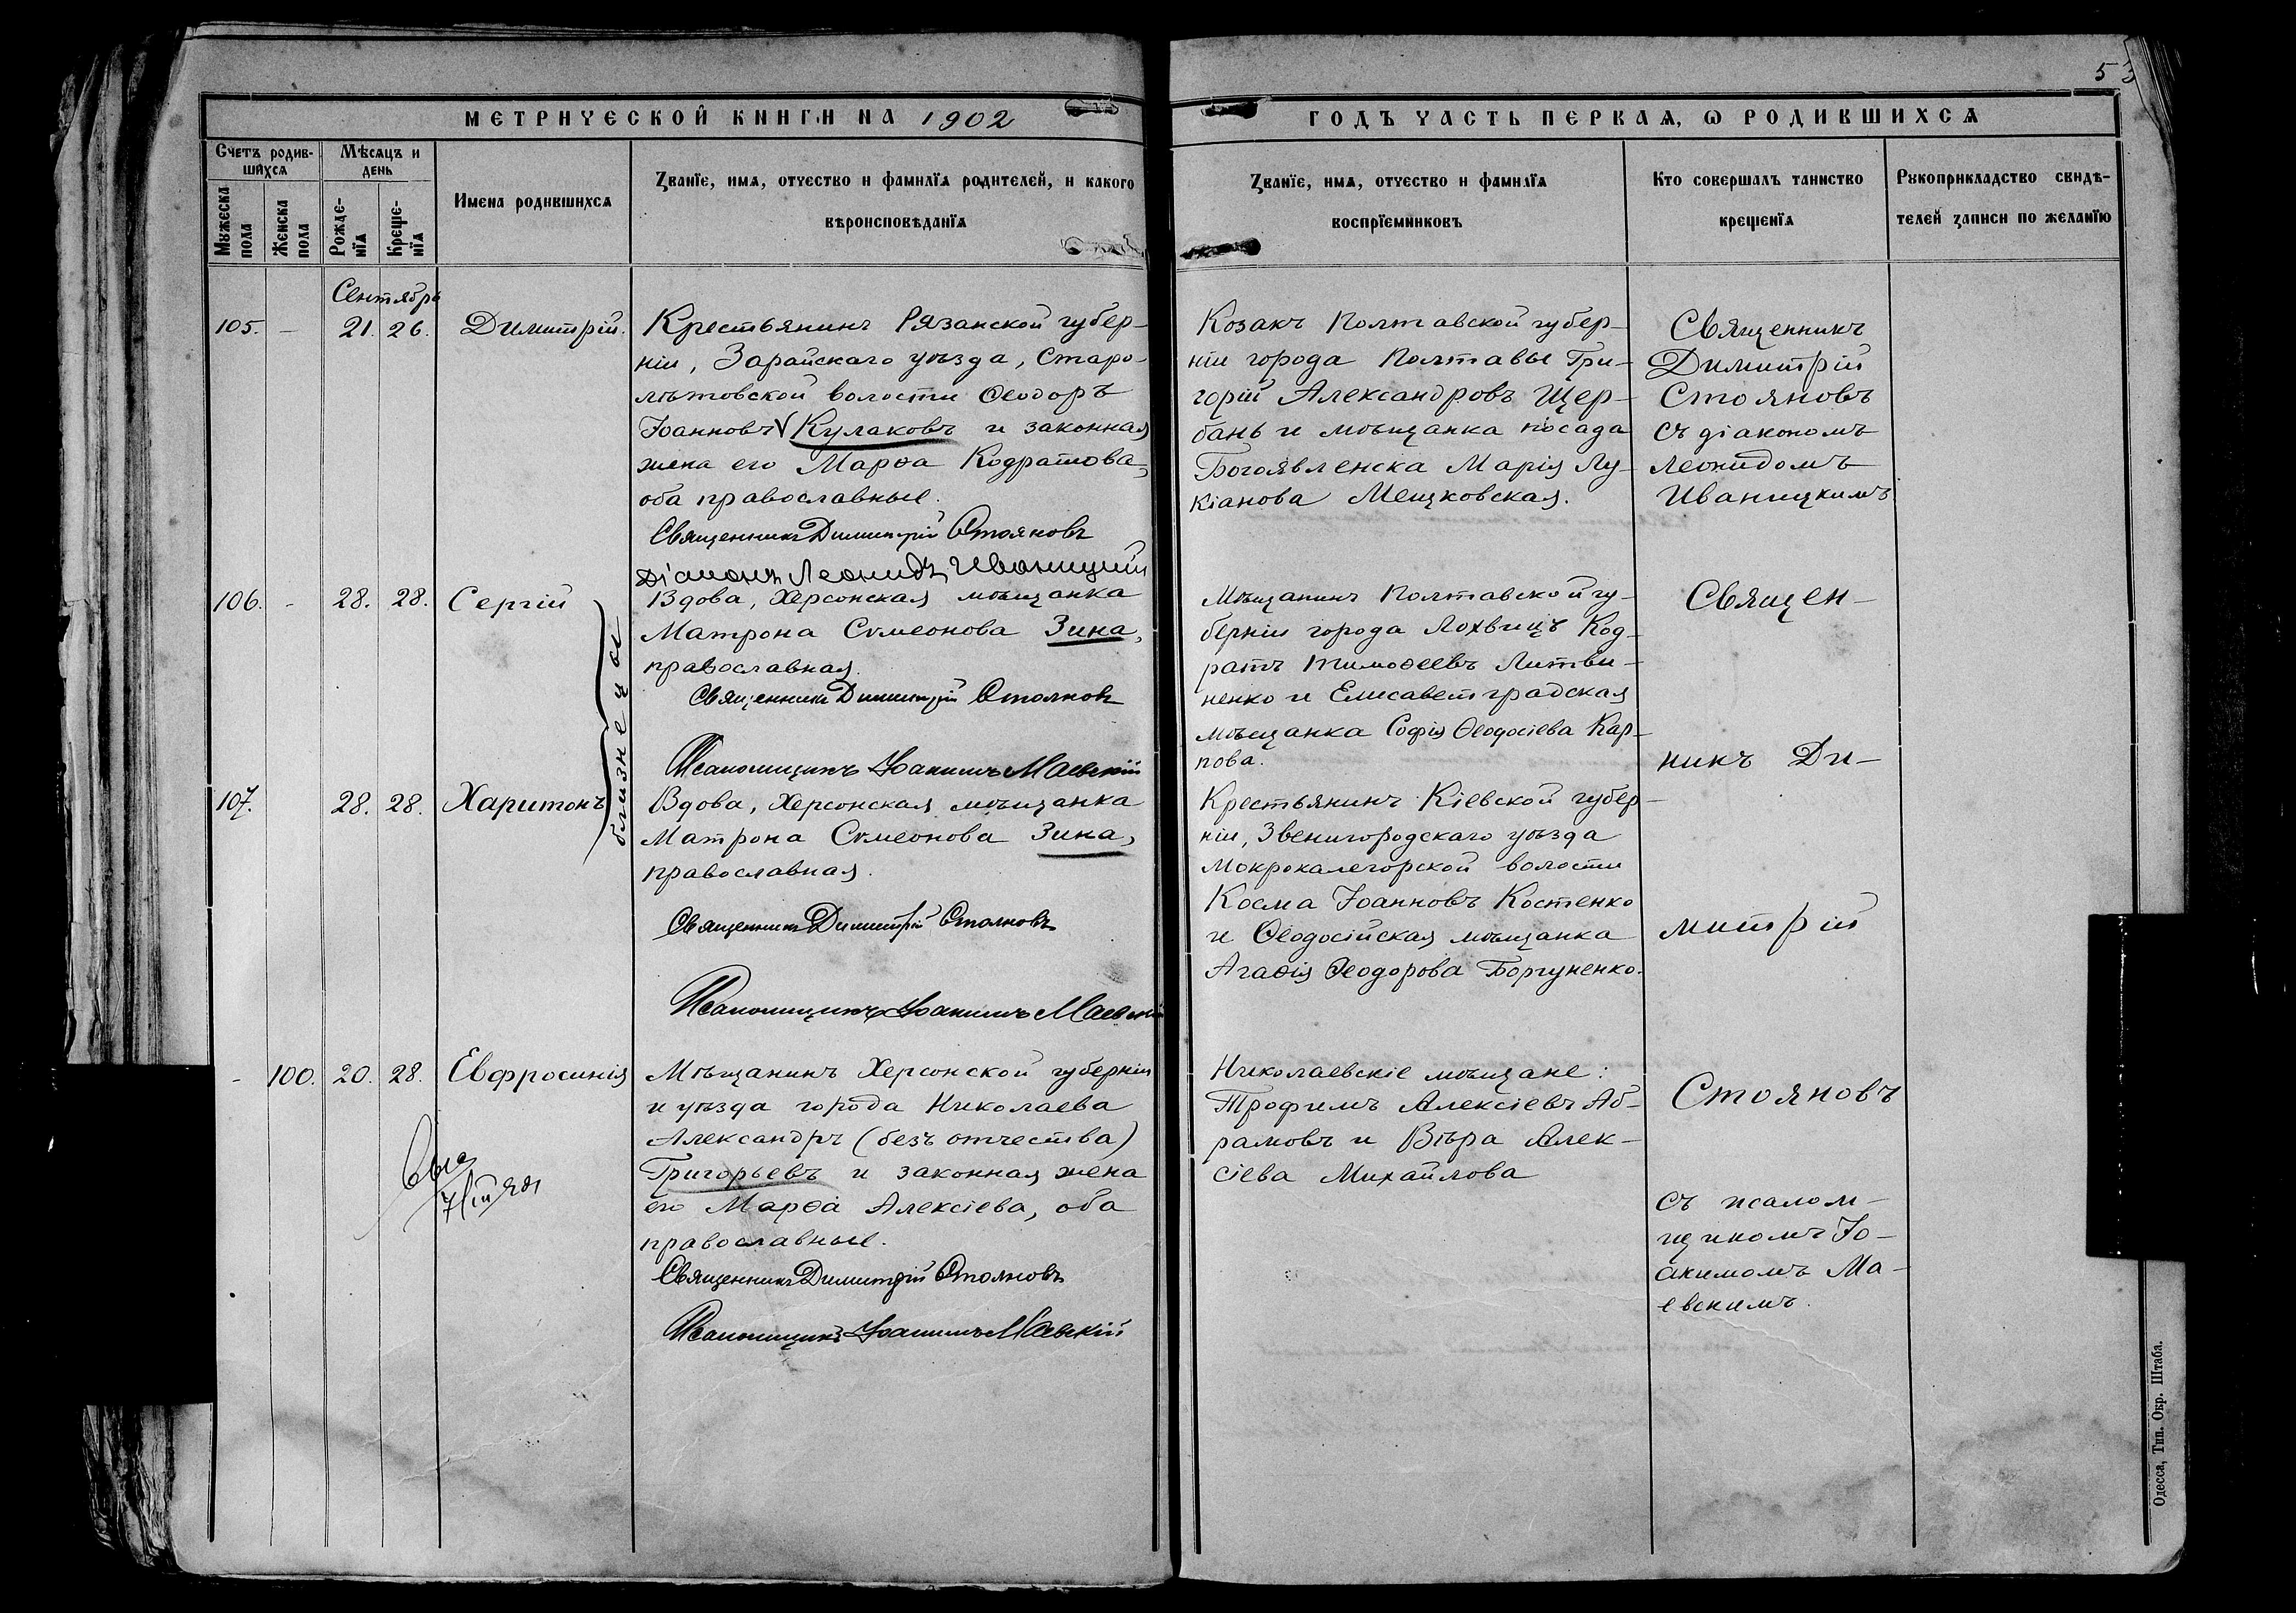 53
МЕТРИЧЕСКОЙ КНИГИ НА 1902
ГОДЪ ЧАСТЬ ПЕРВАЯ, Ѡ РОДИВШИХСѦ
Счетъ родив-
шихсѧ
Мужеска
пола
Женска
пола
Мѣсѧцъ и
день
Рожде-
нїѧ
Креще-
нїѧ
Имена родившихсѧ
Званїе, имѧ, отчество и фамилїѧ родителей, и какого
вѣроисповѣданїѧ
Званїе, имѧ, отчество и фамилїѧ
воспрїемниковъ
Кто совершалъ таинство
крещенїѧ
Рукоприкладство свидѣ-
телей записи по желанїю
Сентябрь
105. — 21. 26. Димитрій.
Крестьянинъ Рязанской губер-
ніи, Зарайскаго уѣзда, Старо-
лѣтовской волости Ѳеодоръ
Іоанновъ Кулаковъ и законная
жена его Марѳа Кодратова,
оба православные.
Священникъ Димитрій Стояновъ
Діаконъ Леонидъ Иваницкий
Козакъ Полтавской губер-
ніи города Полтавы Гри-
горій Александровъ Щер-
бань и мѣщанка посада
Богоявленска Марія Лу-
кіанова Мещковская.
Священникъ
Димитрій
Стояновъ
съ діакономъ
Леонидомъ
Иваницкимъ
106. - 28. 28. Сергій
близнецы
Вдова, Херсонская мѣщанка
Матрона Сѵмеонова Зина,
православная.
Священникъ Димитрій Стояновъ
Псаломщикъ Іоакимъ Маевскій
Мѣщанинъ Полтавской гу-
берніи города Лохвицъ Код-
ратъ Тимоѳеевъ Литви-
ненко и Елисаветградская
мѣщанка Софія Ѳеодосіева Кар-
пова.
Священ-
никъ Ди-
107. 28. 28. Харитонъ
Вдова, Херсонская мѣщанка
Матрона Сѵмеонова Зина,
православная.
Священникъ Димитрій Стояновъ
Псаломщикъ Іоакимъ Маевскій
Крестьянинъ Кіевской губер-
ніи, Звенигородскаго уѣзда
Мокрокалегорской волости
Косма Іоанновъ Костенко
и Ѳеодосійская мѣщанка
Агаѳія Ѳеодорова Боргуненко.
митрій
- 100. 20. 28. Евфросинія
Мѣщанинъ Херсонской губерніи
и уѣзда города Николаева
Александръ (безъ отчества)
Григорьевъ и законная жена
его Марѳа Алексіева, оба
православные.
Священникъ Димитрій Стояновъ
Псаломщикъ Іоакимъ Маевскій
Николаевскіе мѣщане:
Трофимъ Алексіевъ Аб-
рамовъ и Вѣра Алек-
сіева Михайлова
Стояновъ
съ псалом-
щикомъ Іо-
акимомъ Ма-
евскимъ.
Одесса, Тип. Окр. Штаба.